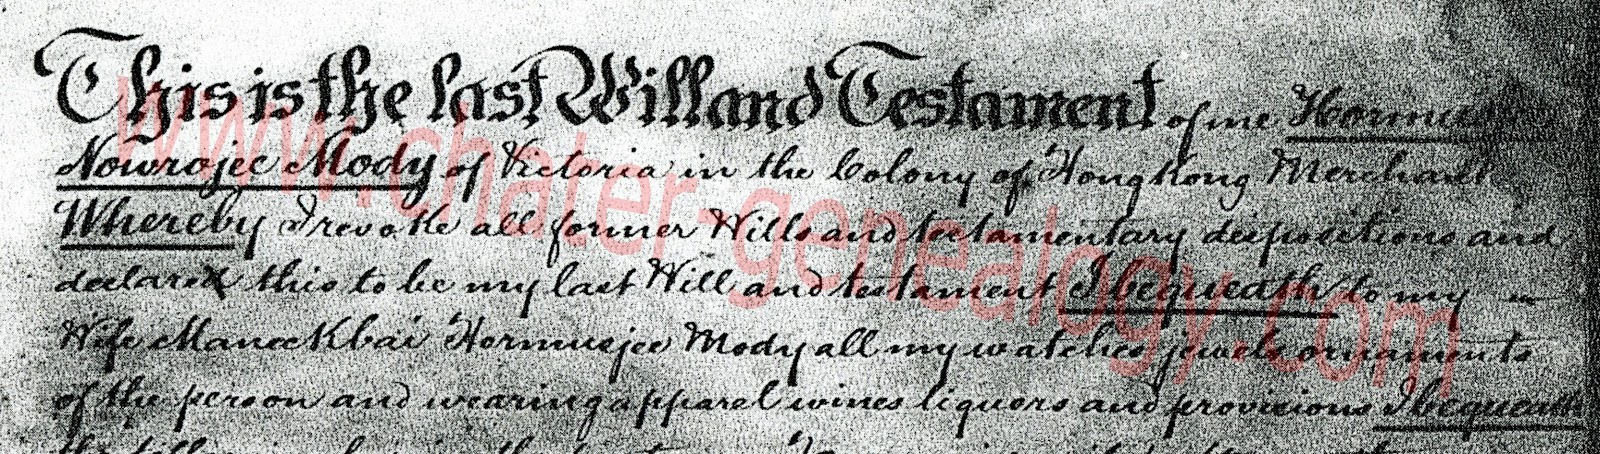 This is the last Will and Testament of me Hormusjee
Nowrojee Mody of Victoria in the Colony of Hong Kong Merchant
Whereby I revoke all former Wills and testamentary dispositions and
declare this to be my last Will and testament I bequeath to my
Wife Maneckbai Hormusjee Mody all my watches jewels ornaments
of the person and wearing apparel wines liquors and provisions I bequeath
www.chater-genealogy.com